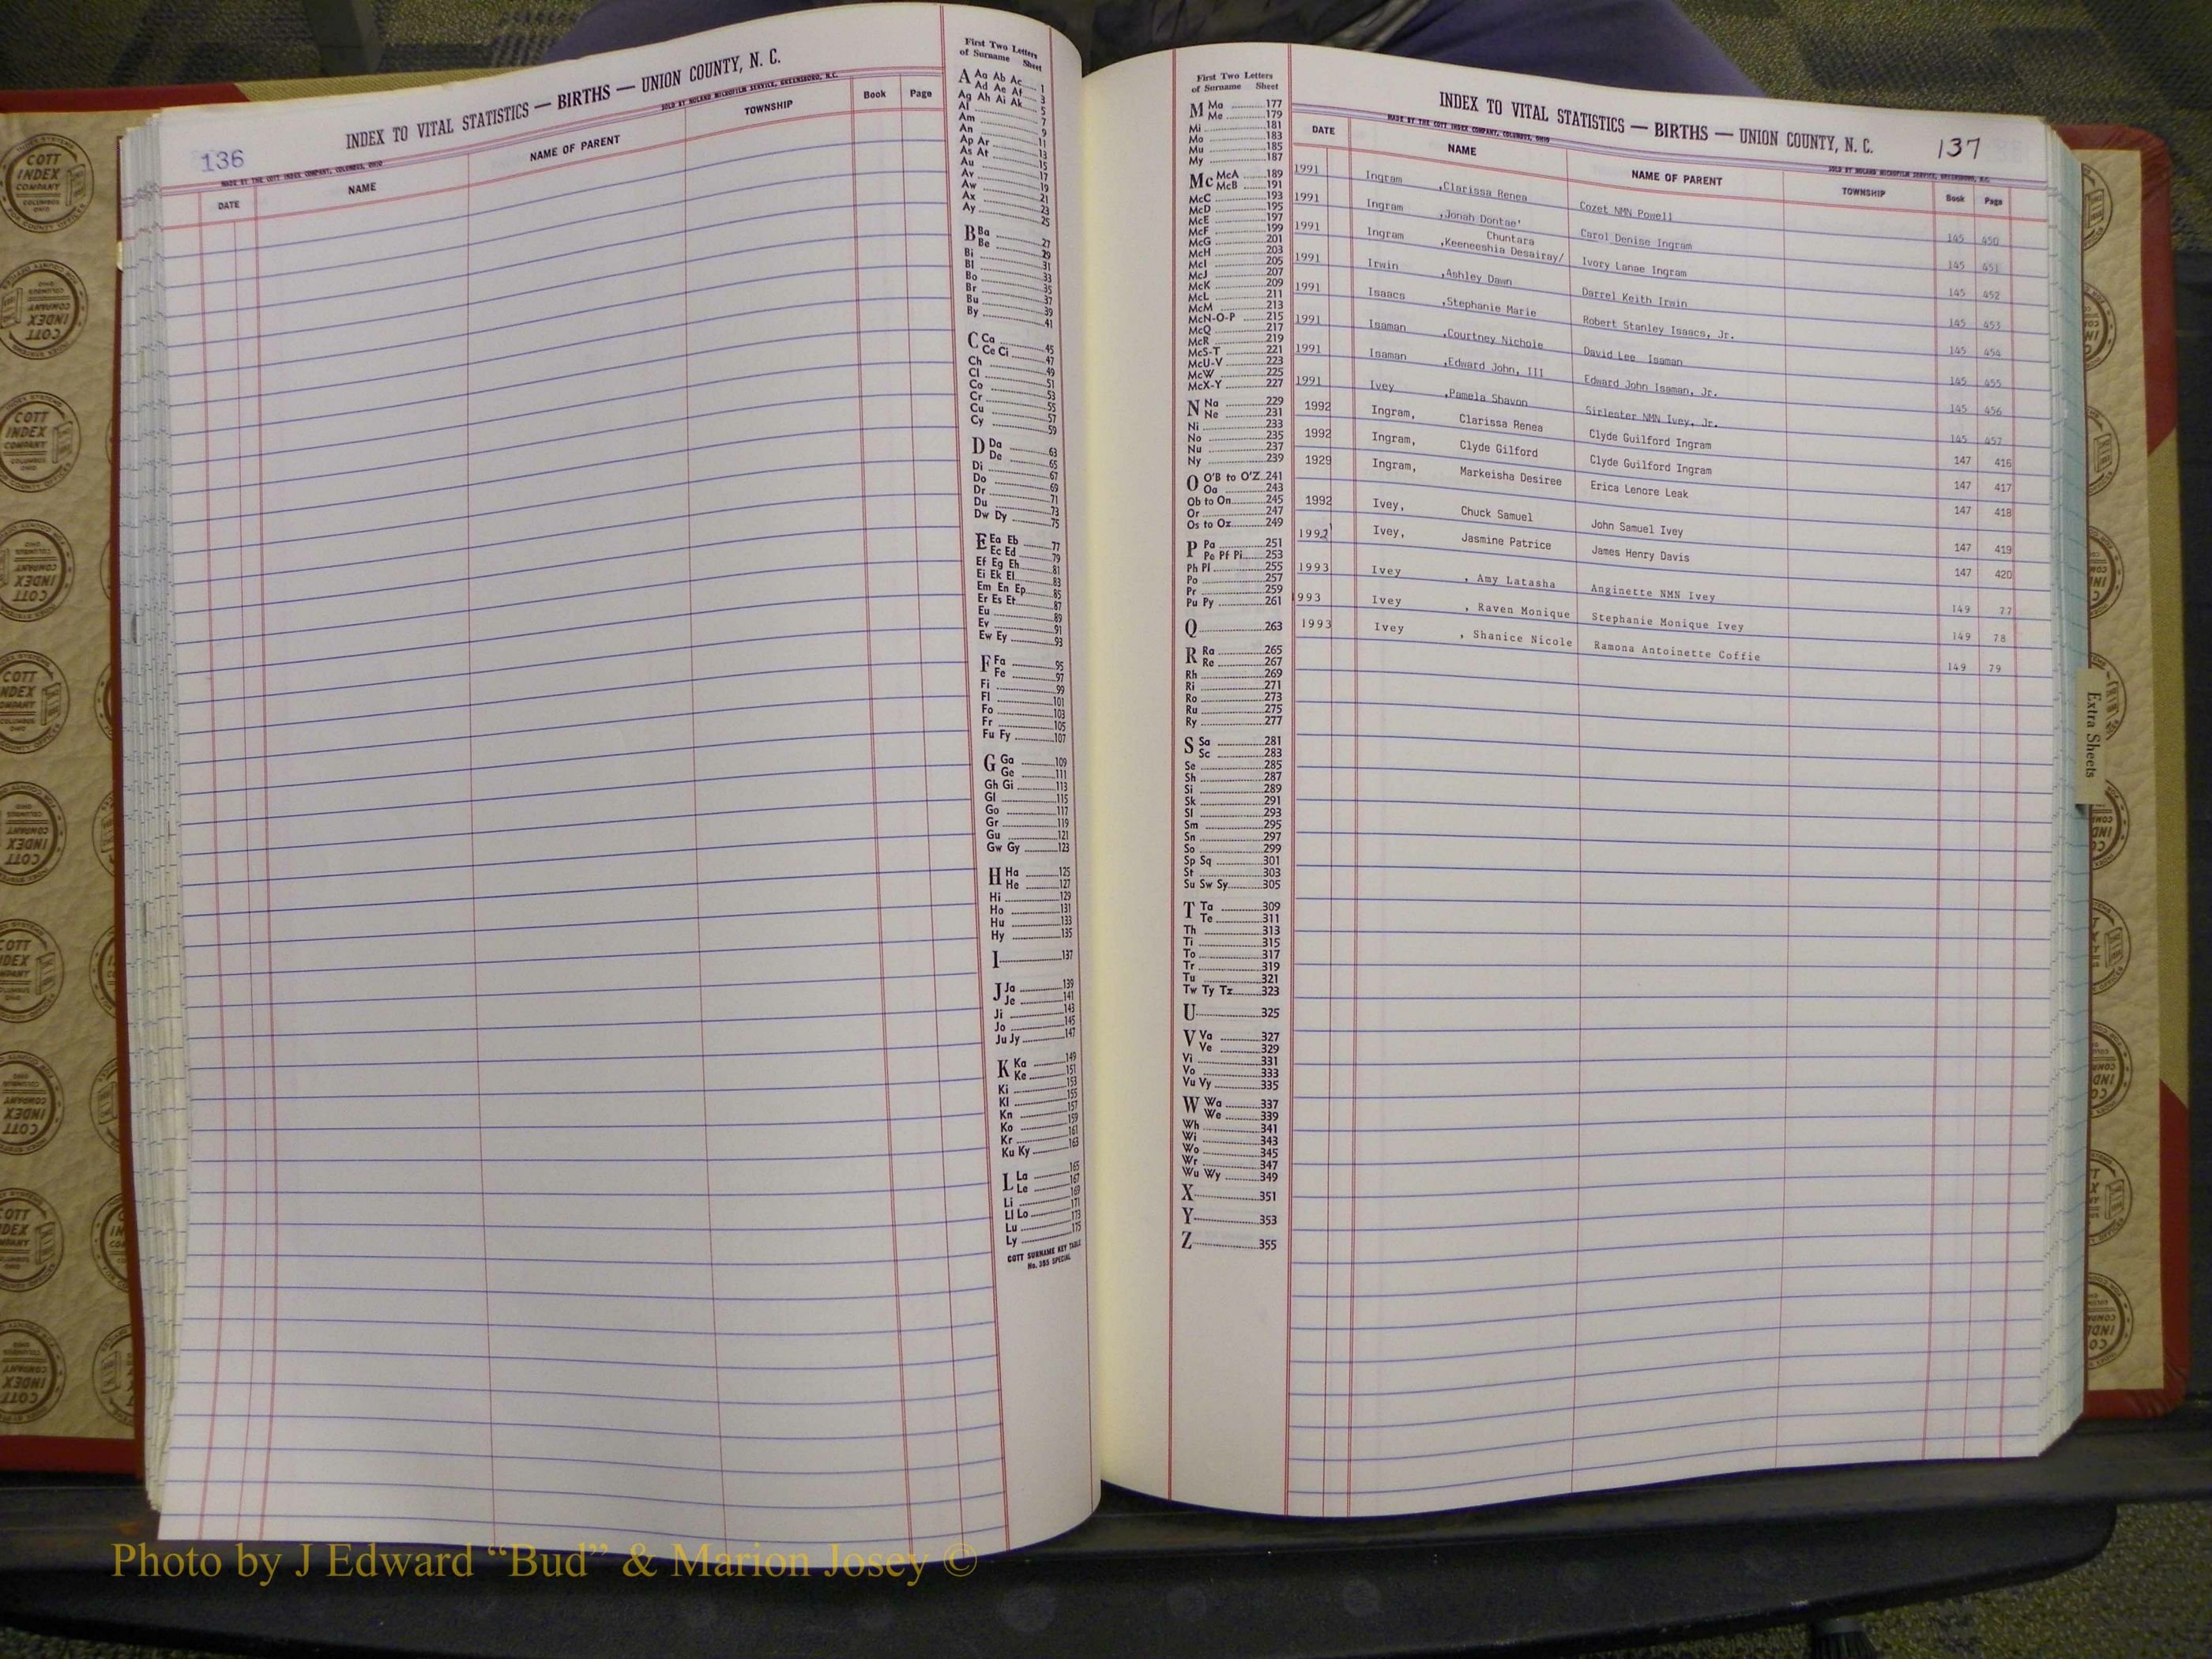 136
INDEX TO VITAL STATISTICS — BIRTHS — UNION COUNTY, N. C.
MADE BY THE COTT INDEX COMPANY, COLUMBUS, OHIO
SOLD BY NOLAND MICROFILM SERVICE, GREENSBORO, N.C.
DATE NAME NAME OF PARENT TOWNSHIP Book Page
First Two Letters
of Surname Sheet
A Aa Ab Ac 1
Ad Ae Af 3
Ag Ah Ai Ak 5
Al 7
Am 9
An 11
Ap Ar 13
As At 15
Au 17
Av 19
Aw 21
Ax 23
Ay 25
B Ba 27
Be 29
Bi 31
Bl 33
Bo 35
Br 37
Bu 39
By 41
C Ca 45
Ce Ci 47
Ch 49
Cl 51
Co 53
Cr 55
Cu 57
Cy 59
D Da 63
De 65
Di 67
Do 69
Dr 71
Du 73
Dw Dy 75
E Ea Eb 77
Ec Ed 79
Ef Eg Eh 81
Ei Ek El 83
Em En Ep 85
Er Es Et 87
Eu 89
Ev 91
Ew Ey 93
F Fa 95
Fe 97
Fi 99
Fl 101
Fo 103
Fr 105
Fu Fy 107
G Ga 109
Ge 111
Gh Gi 113
Gl 115
Go 117
Gr 119
Gu 121
Gw Gy 123
H Ha 125
He 127
Hi 129
Ho 131
Hu 133
Hy 135
I 137
J Ja 139
Je 141
Ji 143
Jo 145
Ju Jy 147
K Ka 149
Ke 151
Ki 153
Kl 155
Kn 157
Ko 159
Kr 161
Ku Ky 163
L La 165
Le 167
Li 169
Ll Lo 171
Lu 173
Ly 175
COTT SURNAME KEY TABLE
No. 355 SPECIAL
First Two Letters
of Surname Sheet
M Ma 177
Me 179
Mi 181
Mo 183
Mu 185
My 187
Mc McA 189
McB 191
McC 193
McD 195
McE 197
McF 199
McG 201
McH 203
McI 205
McJ 207
McK 209
McL 211
McM 213
McN-O-P 215
McQ 217
McR 219
McS-T 221
McU-V 223
McW 225
McX-Y 227
N Na 229
Ne 231
Ni 233
No 235
Nu 237
Ny 239
O O'B to O'Z 241
Oa 243
Ob to On 245
Or 247
Os to Oz 249
P Pa 251
Pe Pf Pi 253
Ph Pl 255
Po 257
Pr 259
Pu Py 261
Q 263
R Ra 265
Re 267
Rh 269
Ri 271
Ro 273
Ru 275
Ry 277
S Sa 281
Sc 283
Se 285
Sh 287
Si 289
Sk 291
Sl 293
Sm 295
Sn 297
So 299
Sp Sq 301
St 303
Su Sw Sy 305
T Ta 309
Te 311
Th 313
Ti 315
To 317
Tr 319
Tu 321
Tw Ty Tz 323
U 325
V Va 327
Ve 329
Vi 331
Vo 333
Vu Vy 335
W Wa 337
We 339
Wh 341
Wi 343
Wo 345
Wr 347
Wu Wy 349
X 351
Y 353
Z 355
INDEX TO VITAL STATISTICS — BIRTHS — UNION COUNTY, N. C. 137
MADE BY THE COTT INDEX COMPANY, COLUMBUS, OHIO
SOLD BY NOLAND MICROFILM SERVICE, GREENSBORO, N.C.
DATE NAME NAME OF PARENT TOWNSHIP Book Page
1991 Ingram ,Clarissa Renea Cozet NMN Powell 145 450
1991 Ingram ,Jonah Dontae' Carol Denise Ingram 145 451
Chuntara
1991 Ingram ,Keeneeshia Desairay/ Ivory Lanae Ingram 145 452
1991 Irwin ,Ashley Dawn Darrel Keith Irwin 145 453
1991 Isaacs ,Stephanie Marie Robert Stanley Isaacs, Jr. 145 454
1991 Isaman ,Courtney Nichole David Lee Isaman 145 455
1991 Isaman ,Edward John, III Edward John Isaman, Jr. 145 456
1991 Ivey ,Pamela Shavon Sirlester NMN Ivey, Jr. 145 457
1992 Ingram, Clarissa Renea Clyde Guilford Ingram 147 416
1992 Ingram, Clyde Gilford Clyde Guilford Ingram 147 417
1929 Ingram, Markeisha Desiree Erica Lenore Leak 147 418
1992 Ivey, Chuck Samuel John Samuel Ivey 147 419
1992 Ivey, Jasmine Patrice James Henry Davis 147 420
1993 Ivey , Amy Latasha Anginette NMN Ivey 149 77
1993 Ivey , Raven Monique Stephanie Monique Ivey 149 78
1993 Ivey , Shanice Nicole Ramona Antoinette Coffie 149 79
Extra Sheets
COTT
INDEX
COMPANY
COLUMBUS
OHIO
Photo by J Edward “Bud” & Marion Josey ©